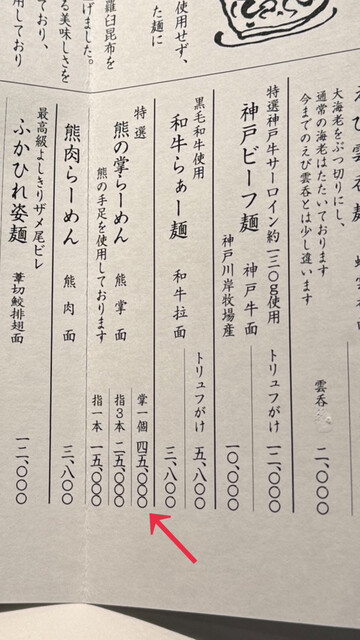 使用せず、
た麺に
羅臼昆布を
げました。
る美味しさを
ており、
用しており
大海老をぶつ切りにし、
通常の海老はたたいております
今までのえび雲呑とは少し違います
雲呑
二、〇〇〇
特選神戸牛サーロイン約一三〇g使用
神戸ビーフ麺
神戸牛面
神戸川岸牧場産
トリュフがけ 一二、〇〇〇
一〇、〇〇〇
黒毛和牛使用
和牛らぁー麺
和牛拉面
トリュフがけ 五、八〇〇
三、八〇〇
特選
熊の掌らーめん
熊掌面
熊の手足を使用しております
掌一個 四五、〇〇〇
指3本 二五、〇〇〇
指一本 一五、〇〇〇
熊肉らーめん
熊肉面
三、八〇〇
最高級よしきりザメ尾ビレ
ふかひれ姿麺
葦切鮫排翅面
一二、〇〇〇